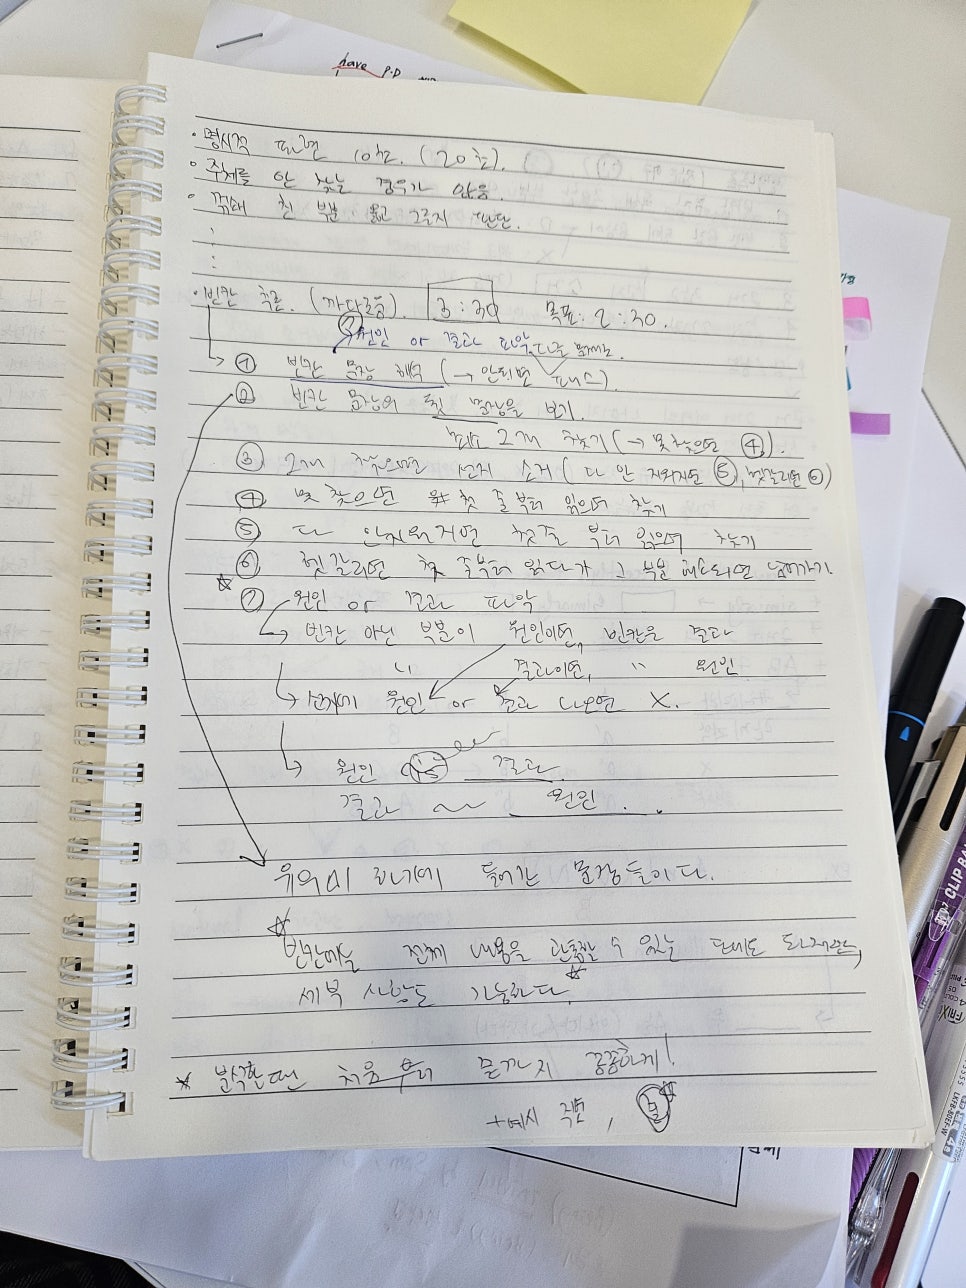 have P.P
· 명시적 표면 10초. (20초).
· 주제를 안 찾는 경우가 있음.
· 꺾쇠 친 부분 읽고 그른지 판단.
:
:
· 빈칸 추론. (까다로움). 3:30 목표: 2:30.
⑦ 원인 or 결과 파악
① 빈칸 문장 해석 (→ 안되면 패스).
② 빈칸 문장의 뒷 문장을 보기.
2개 찾기 (→ 못 찾으면 ④).
③ 2개 찾으면 선지 소거 (다 안 지워지면 ⑤, 헷갈리면 ⑥)
④ 못 찾으면 첫 줄부터 읽으며 찾기
⑤ 다 안지워지면 첫줄 부터 읽으며 찾기
⑥ 헷갈리면 첫 줄부터 읽다가 그 부분 해소되면 넘어가기
☆ ⑦ 원인 or 결과 파악
→ 빈칸 아닌 부분이 원인이면, 빈칸은 결과
" 결과이면, " 원인.
→ 선지에 원인 or 결과 나오면 X.
→ 원인 is 결과.
결과 ~ 원인.
유의미 하기에 들어간 문장들이다.
☆ 빈칸에는 전체 내용을 관통할 수 있는 단어도 되지만,
세부 사항도 가능하다. ☆
★ 분석할때 처음부터 끝까지 꼼꼼하게!
+ 예시
CLIP
FRIX